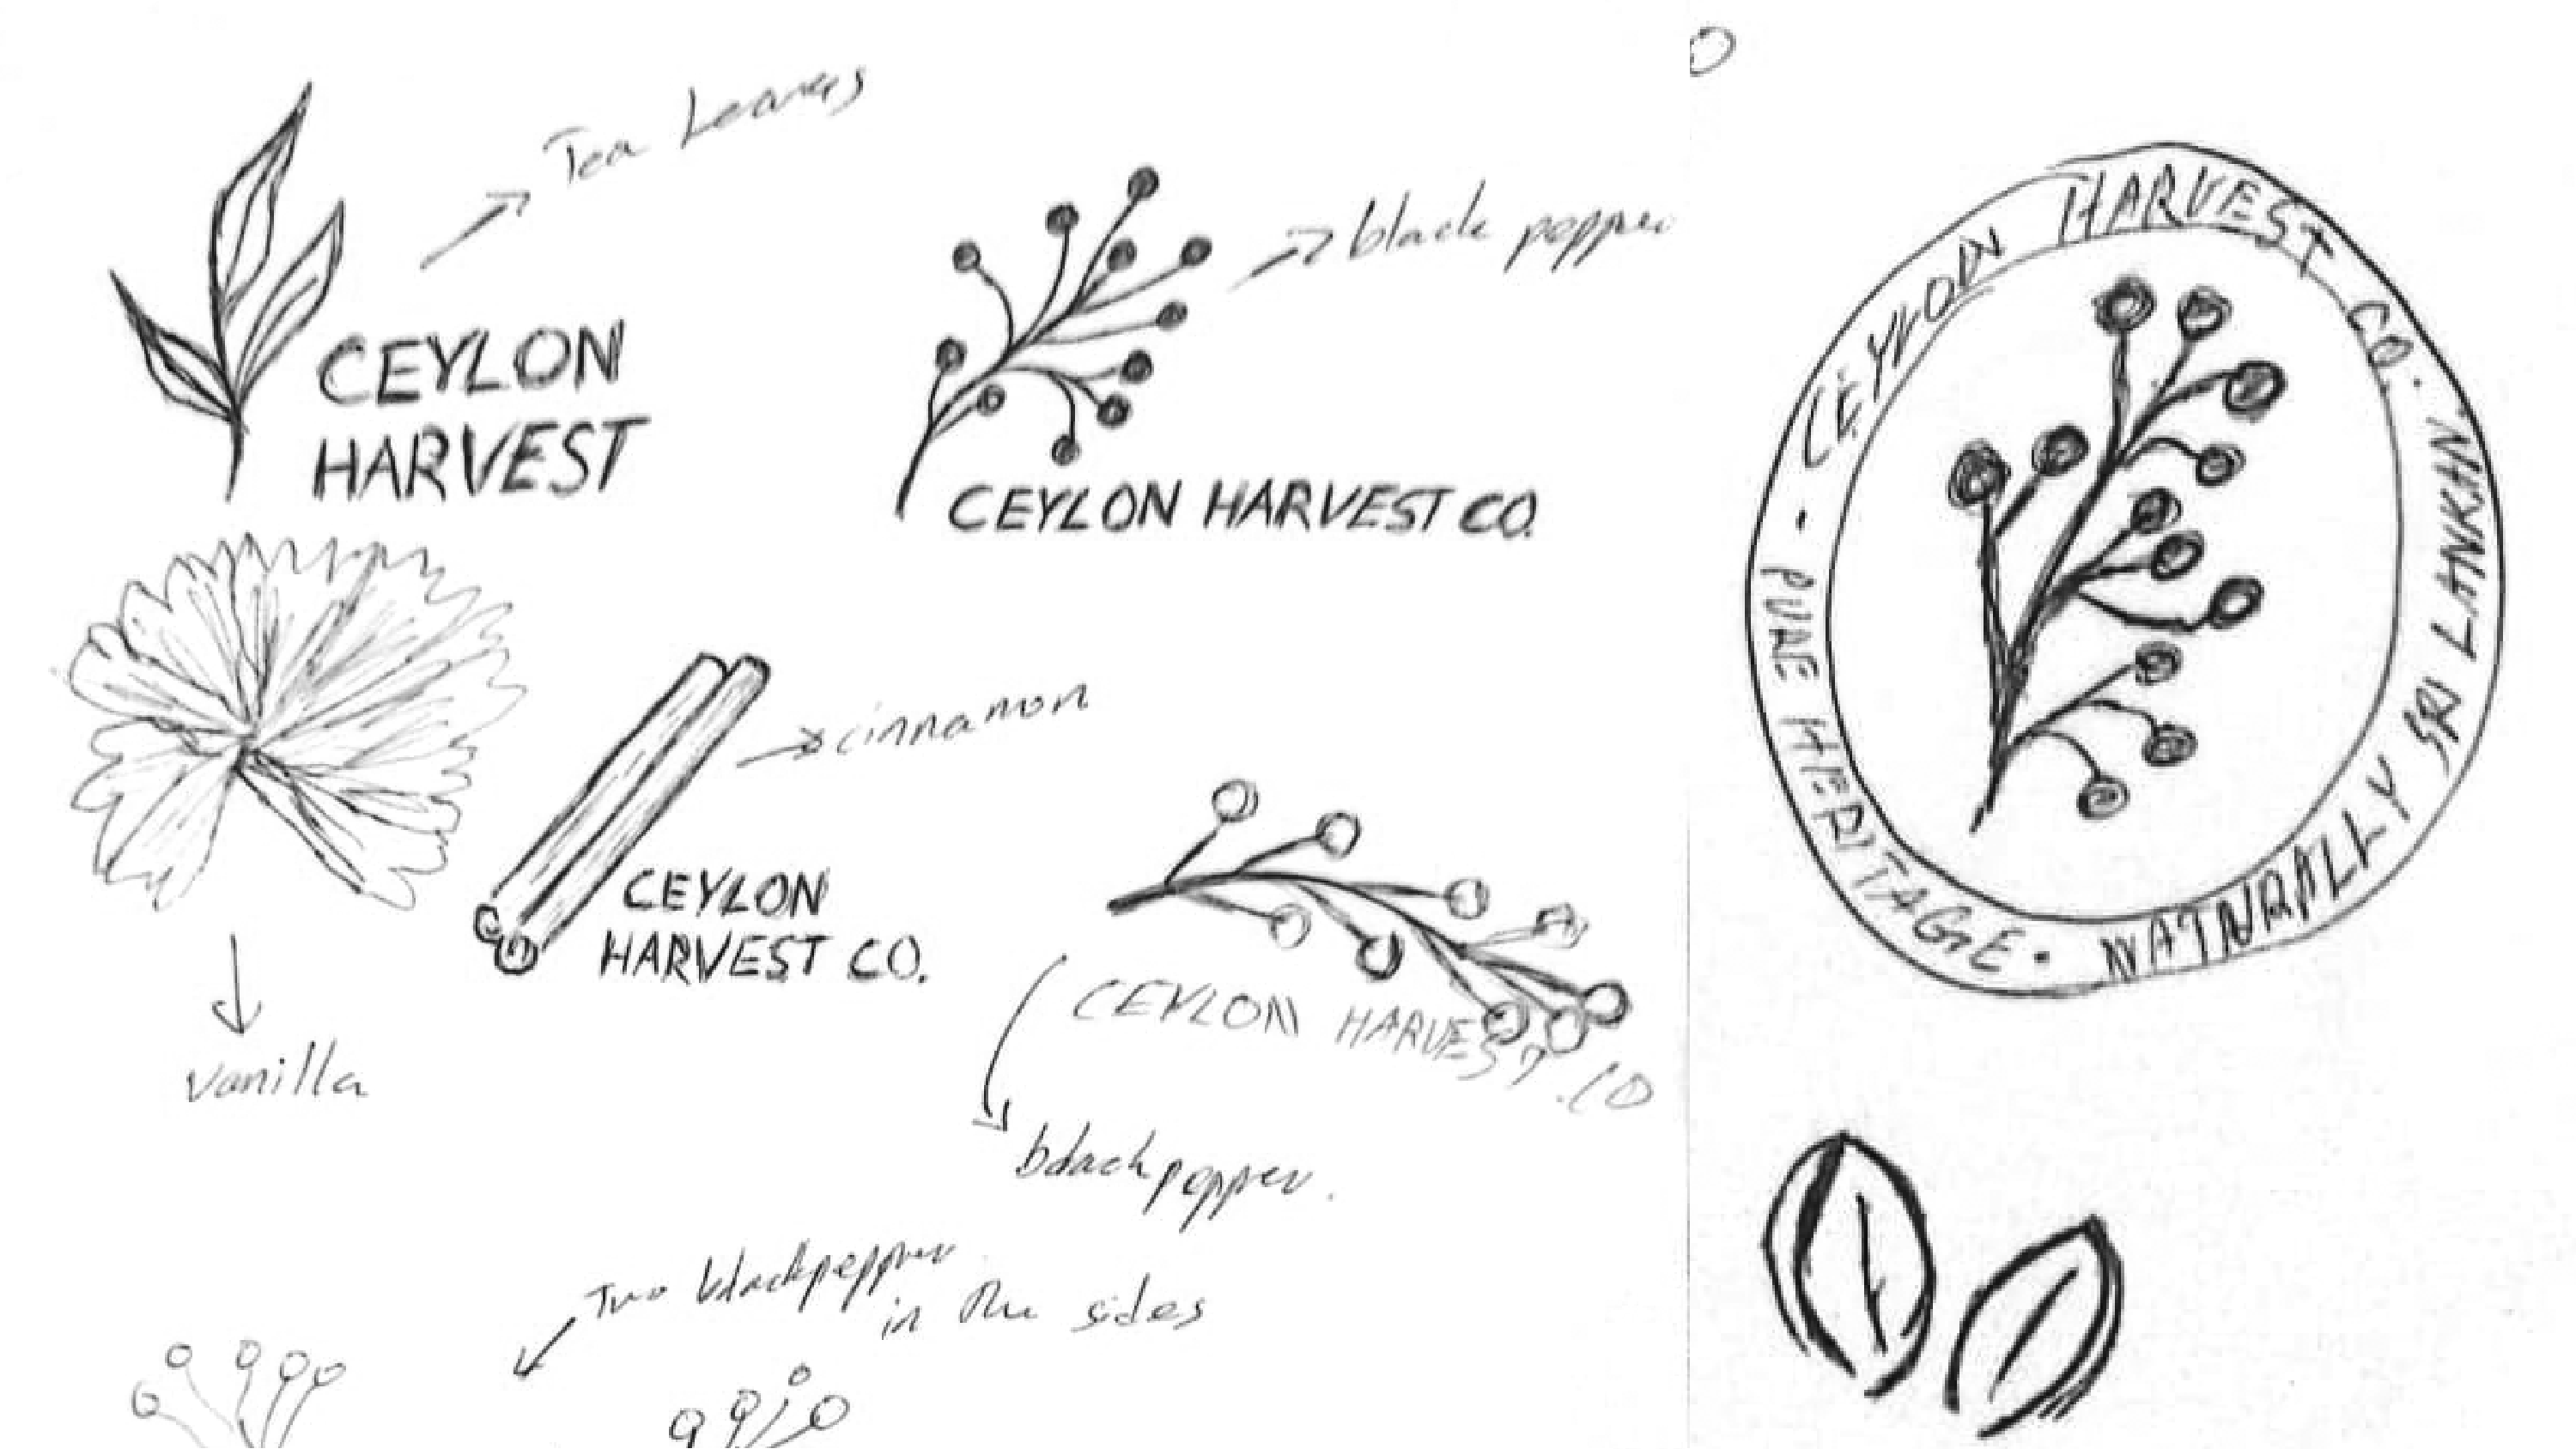 Tea Leaves
CEYLON
HARVEST
black pepper
CEYLON HARVEST CO.
cinnamon
CEYLON
HARVEST CO.
vanilla
CEYLON HARVEST.CO
bdackpepper.
Two blackpepper
in the sides
CEYLON HARVEST CO.
NATNRALLY SRI LANKAN
PURE HERITAGE.